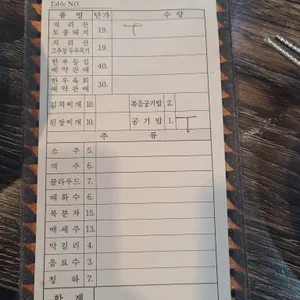 Table NO.
품 명 단가 수 량
지리산 토종돼지 19.
지리산 고추장두루치기 19.
한우등심 예약판매 40.
한우육회 예약판매 30.
김치찌개 10. 볶음공기밥 2.
된장찌개 10. 공기밥 1.
주 류
소 주 5.
맥 주 6.
클라우드 7.
매화수 6.
복분자 15.
백세주 13.
막걸리 4.
음료수 3.
청 하 7.
합 계